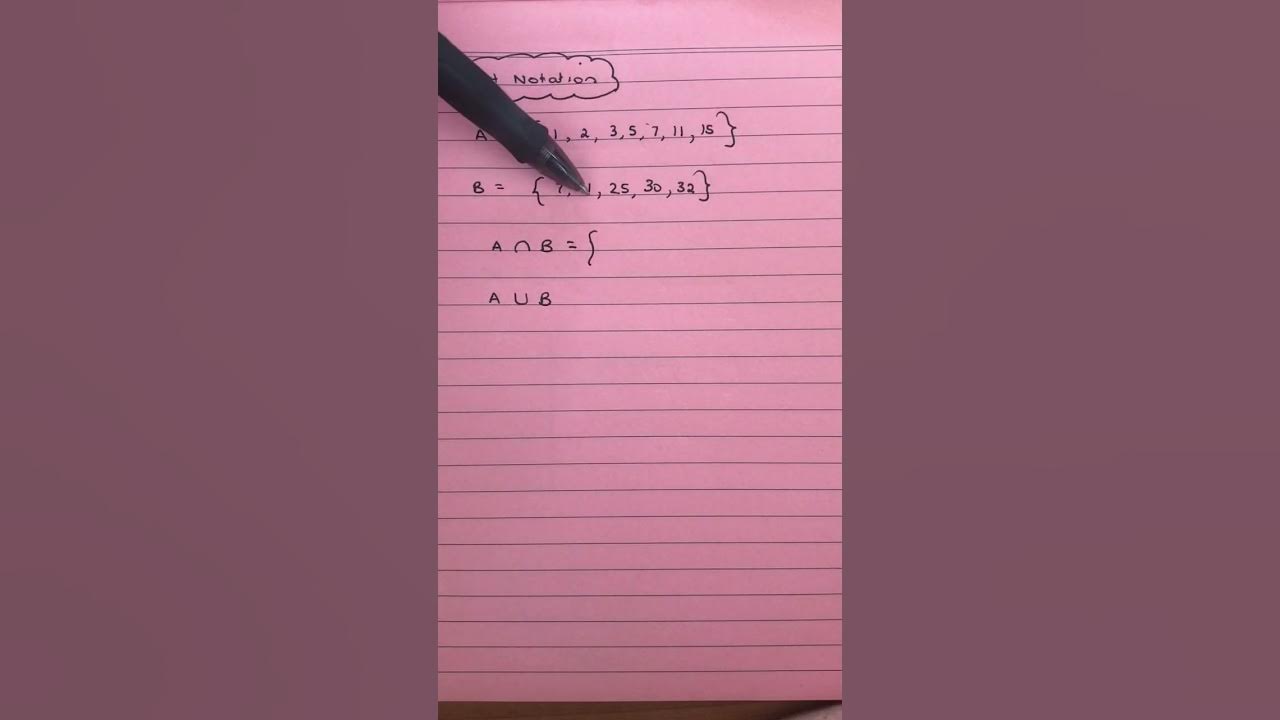 Notation
A 1, 2, 3, 5, 7, 11, 15 }
B = { 7, 25, 30, 32 }
A ∩ B = {
A ∪ B